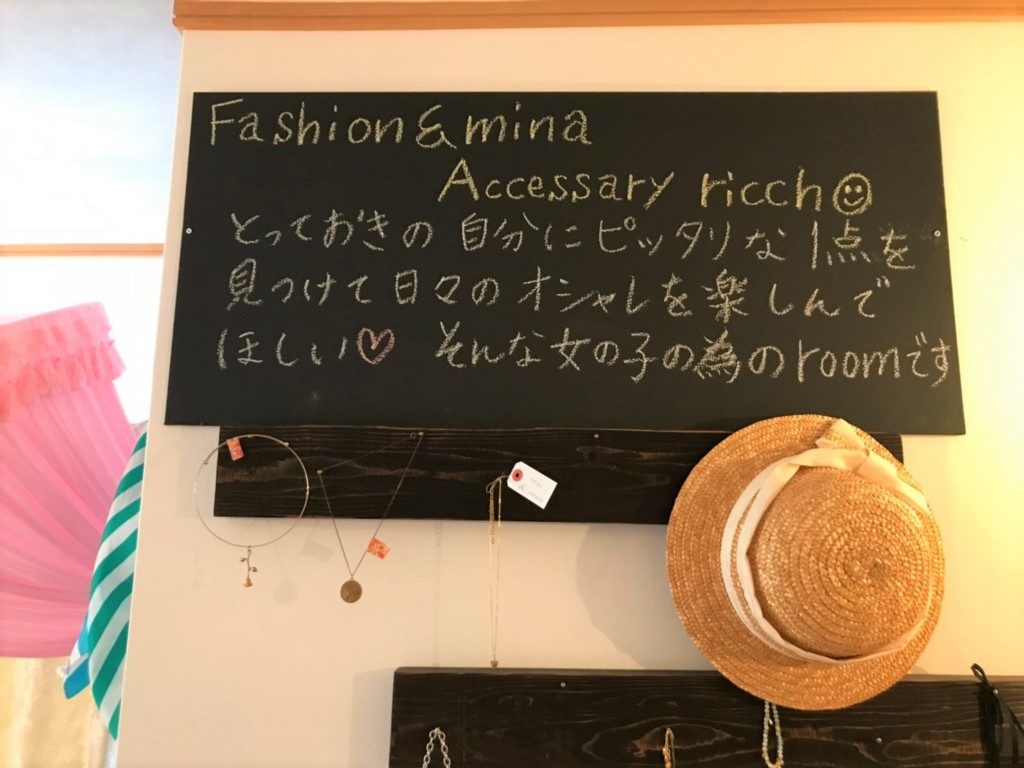 Fashion & mina
Accessary ricch
とっておきの自分にピッタリな1点を
見つけて日々のオシャレを楽しんで
ほしい♡ そんな女の子の為のroomです